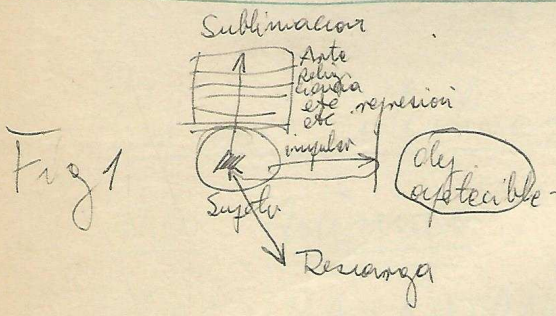 Sublimacion
Arte
Relig
Ciencia
etc
etc
represion
impulso
Fig 1
obj
apetecible
Sujeto
Descarga